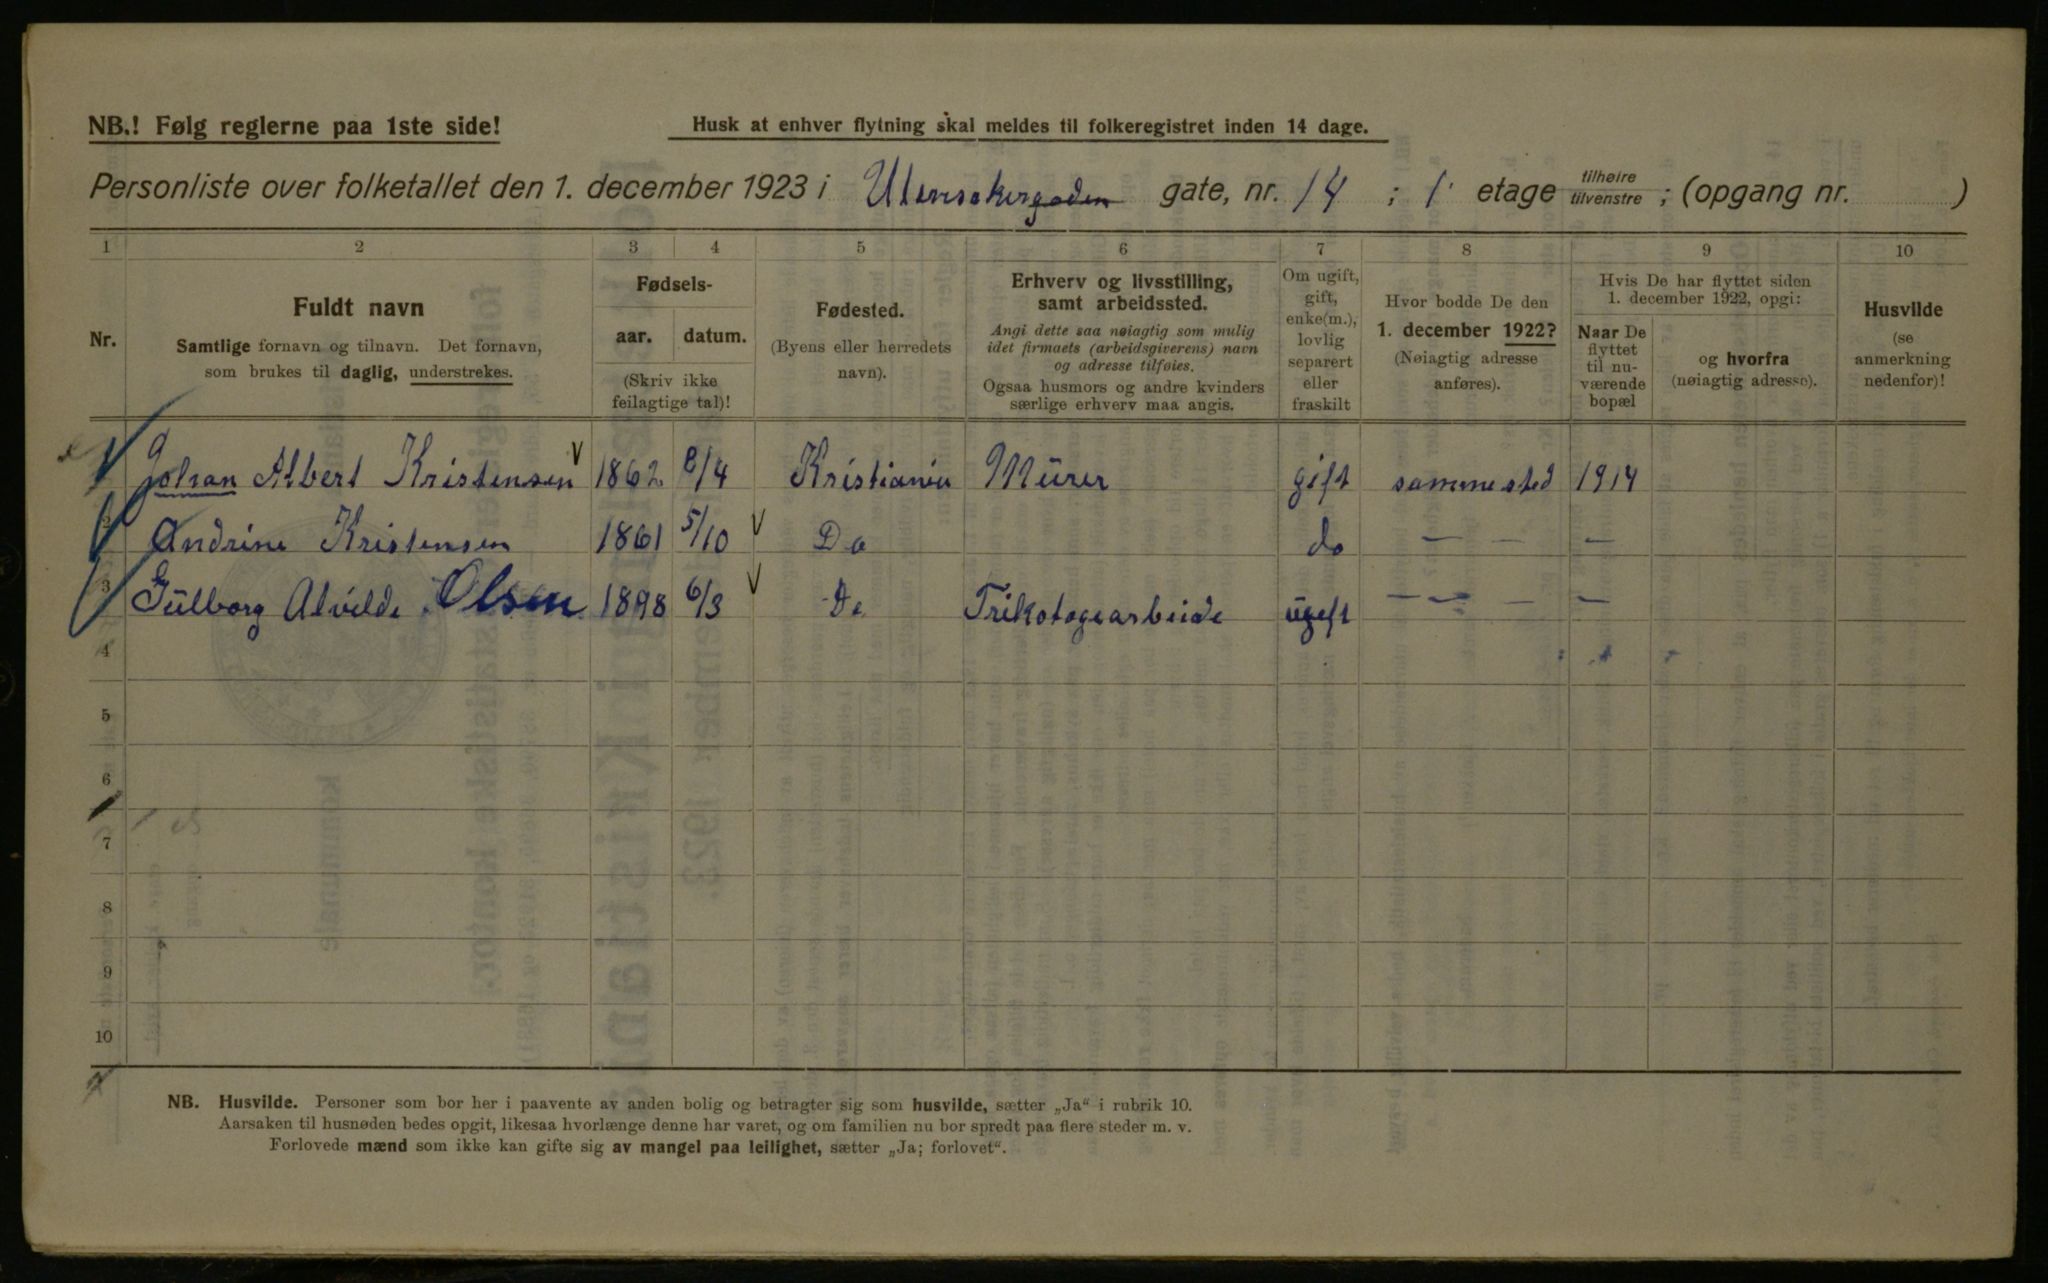 NB.! Følg reglerne paa 1ste side!
Husk at enhver flytning skal meldes til folkeregistret inden 14 dage.
Personliste over folketallet den 1. december 1923 i Ulensakergaden gate, nr. 14 ; 1 etage tilhøire tilvenstre ; (opgang nr. )
1 2 3 4 5 6 7 8 9 10
Nr.
Fuldt navn
Samtlige fornavn og tilnavn. Det fornavn,
som brukes til daglig, understrekes.
Fødsels-
aar. datum.
(Skriv ikke
feilagtige tal)!
Fødested.
(Byens eller herredets
navn).
Erhverv og livsstilling,
samt arbeidssted.
Angi dette saa nøiagtig som mulig
idet firmaets (arbeidsgiverens) navn
og adresse tilføies.
Ogsaa husmors og andre kvinders
særlige erhverv maa angis.
Om ugift,
gift,
enke(m.),
lovlig
separert
eller
fraskilt
Hvor bodde De den
1. december 1922?
(Nøiagtig adresse
anføres).
Hvis De har flyttet siden
1. december 1922, opgi:
Naar De
flyttet
til nu-
værende
bopæl
og hvorfra
(nøiagtig adresse).
Husvilde
(se
anmerkning
nedenfor)!
1 Johan Albert Kristensen 1862 8/4 Kristiania Mürer gift sammested 1914
2 Andrine Kristensen 1861 5/10 Do do — — —
3 Gülborg Alvilde Olsen 1898 6/3 Do Trikotagearbeide ugift — — — —
4
5
6
7
8
9
10
NB. Husvilde. Personer som bor her i paavente av anden bolig og betragter sig som husvilde, sætter „Ja“ i rubrik 10.
Aarsaken til husnøden bedes opgit, likesaa hvorlænge denne har varet, og om familien nu bor spredt paa flere steder m. v.
Forlovede mænd som ikke kan gifte sig av mangel paa leilighet, sætter „Ja; forlovet“.